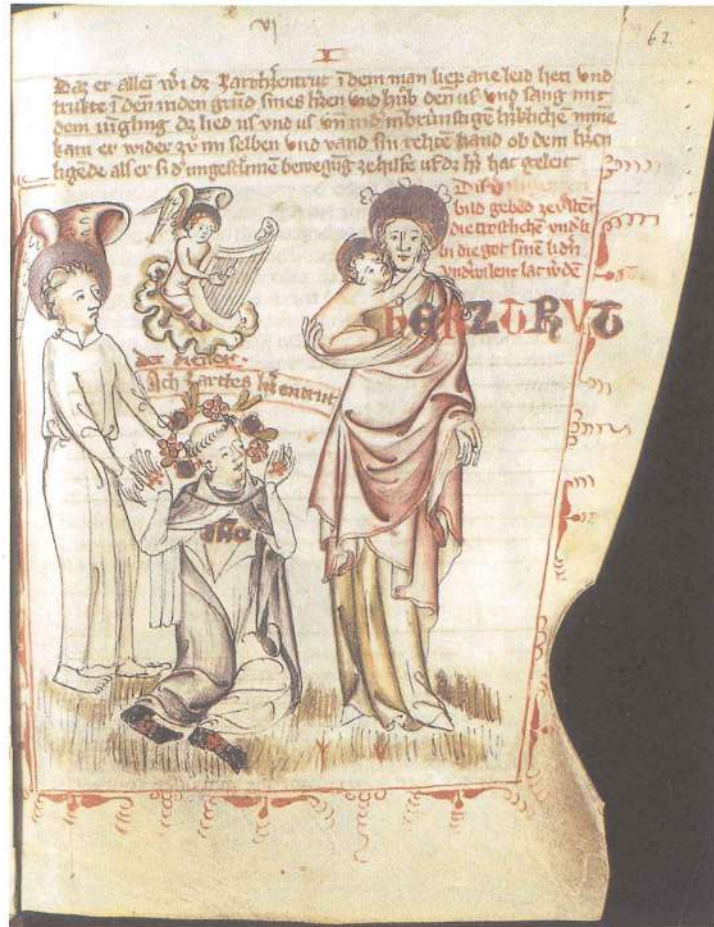 VI
62.
I
Daz er allei wi dz zarth h'zentrut i dem man liep ane leid heti vnd
trukte i den inden grūd sines h'zen vnd hūb den us vnd sang mit
dem iūgling dz lied us vnd us vn mit inbrünstige h'zklichē mine
kam er wider zū im selben vnd vand sin rehten hand ob dem h'zen
ligēde als er si d' ungestümen bewegūg ze hilfe uf dz h'z hat geleit
Disū
bild gebād
die trostlichē vnd
in die got sinē
vnd wilent lat
HERZTRVT
der diener.
Ach zartes h'zentrut
IHC